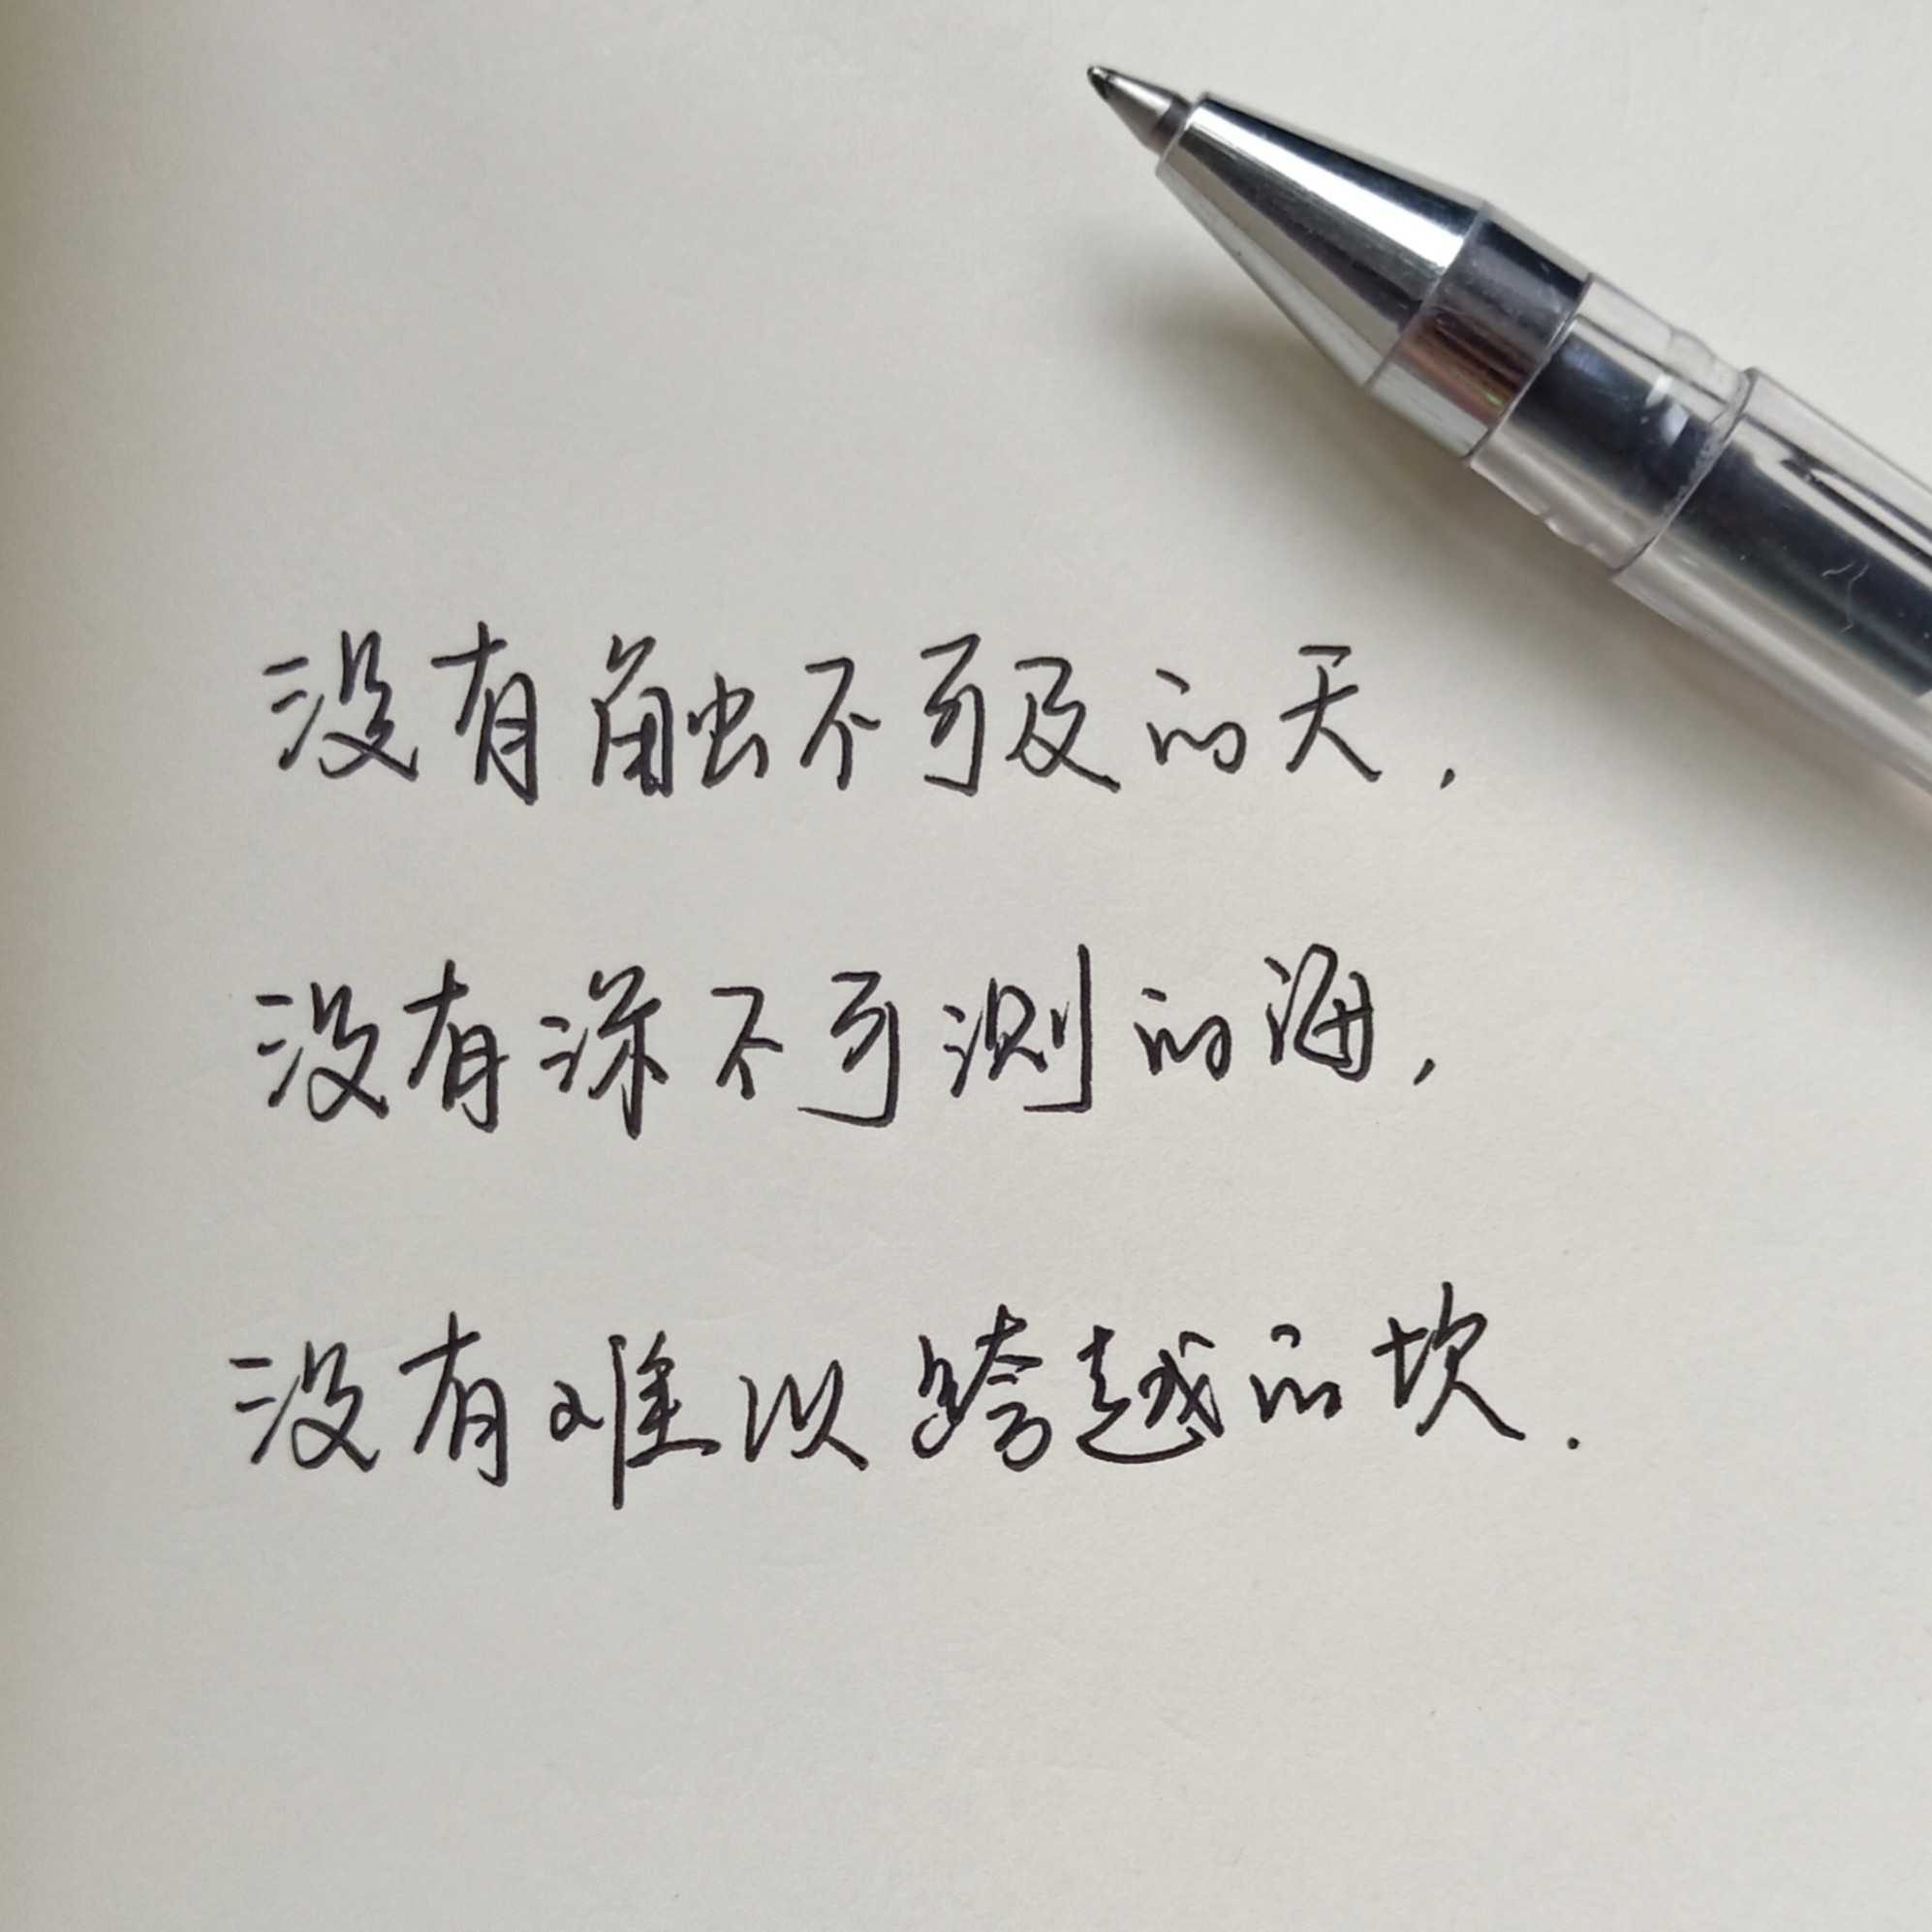 没有触不可及的天，
没有深不可测的海，
没有难以跨越的坎.